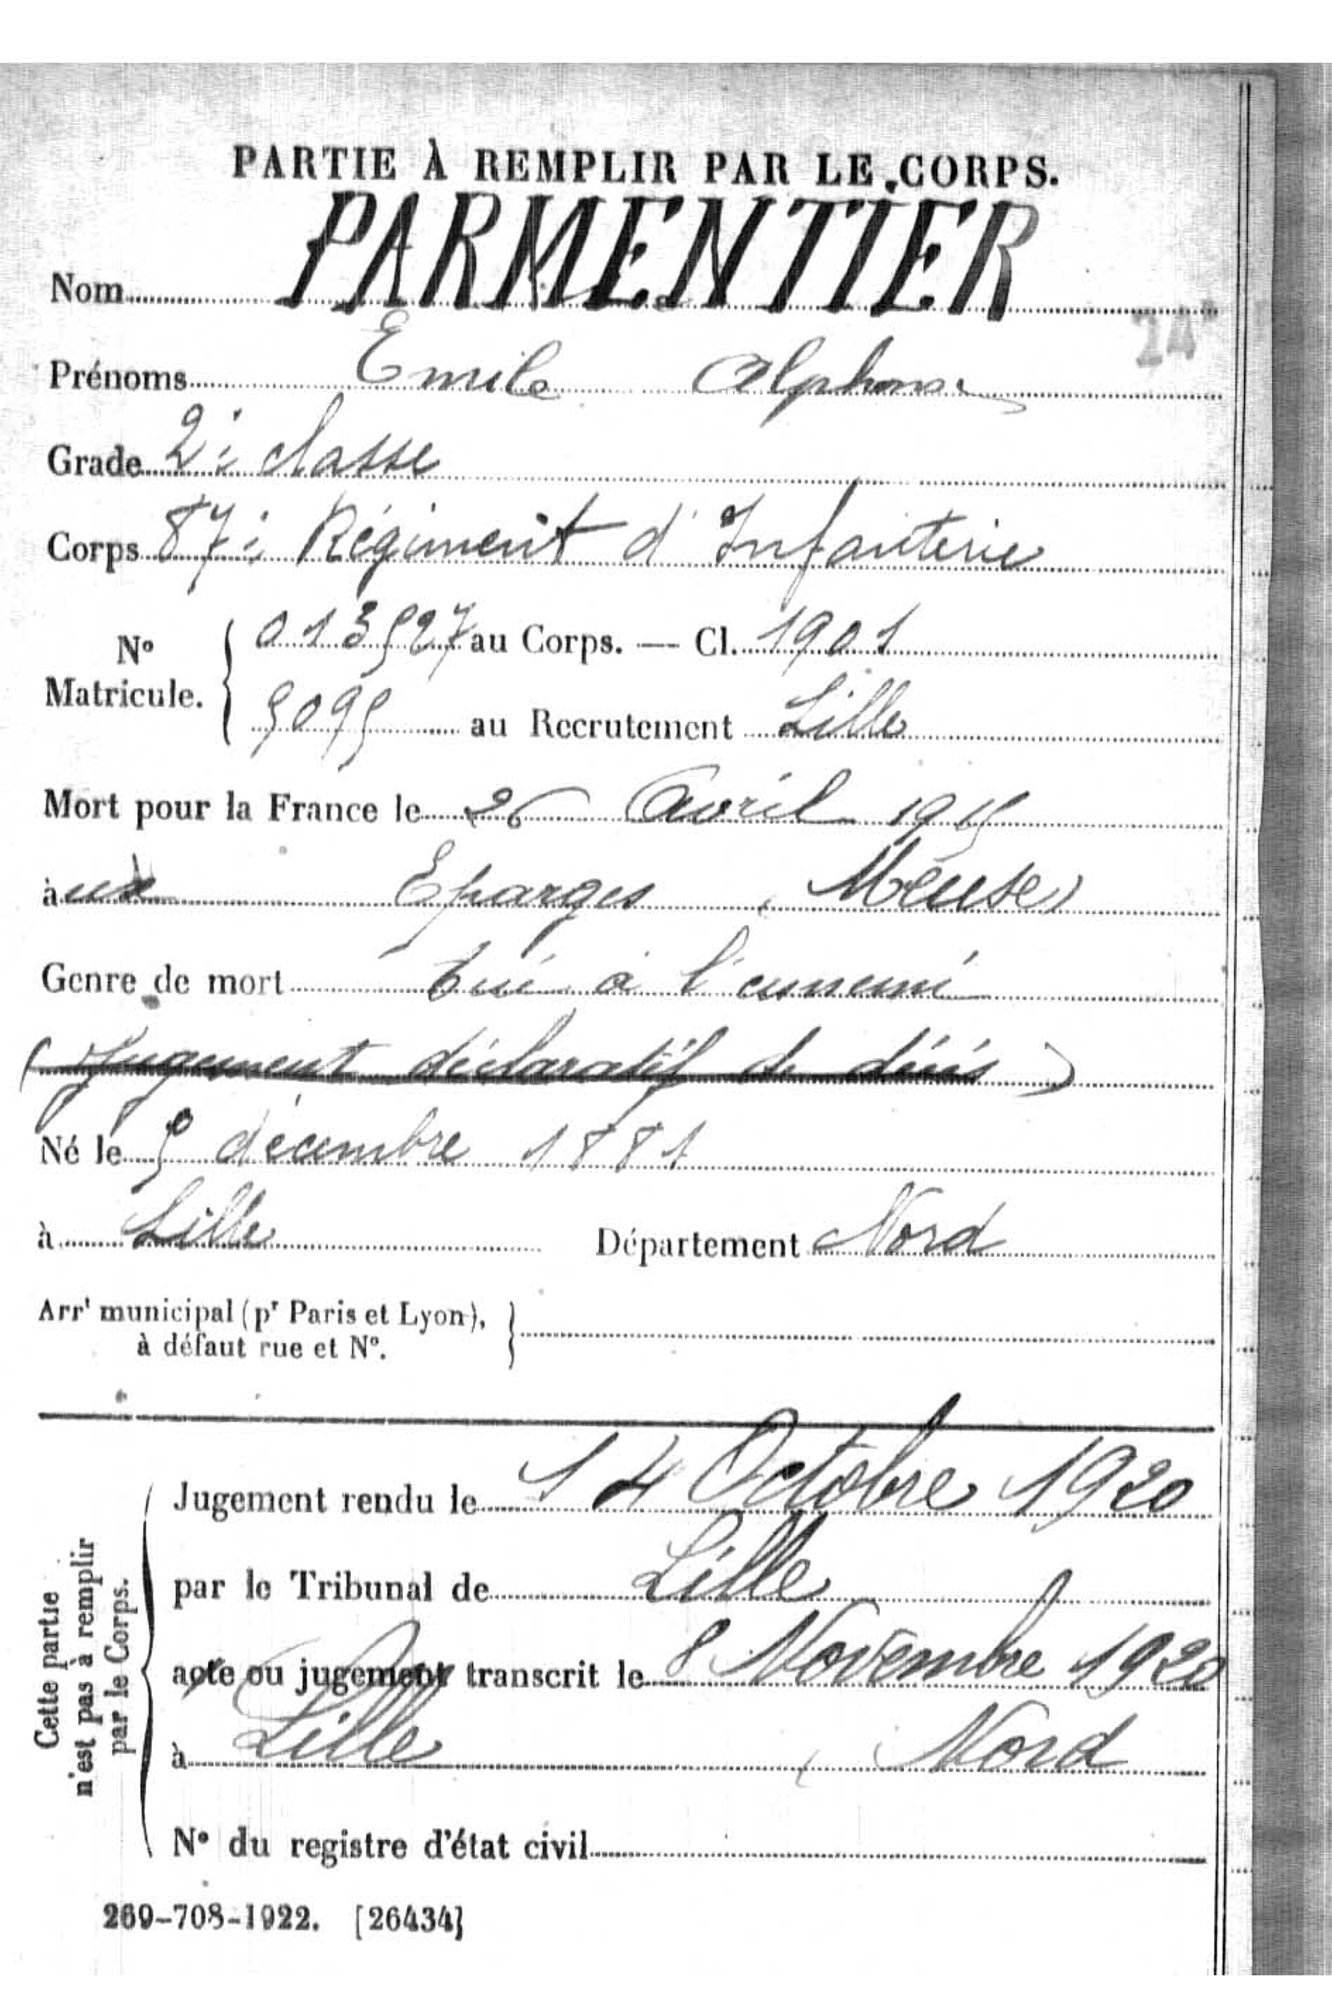 PARTIE À REMPLIR PAR LE CORPS.
Nom PARMENTIER
24e
Prénoms Emile Alphonse
Grade 2e classe
Corps 87e Régiment d'Infanterie
No Matricule. { 013527 au Corps. — Cl. 1901
5095 au Recrutement Lille
Mort pour la France le 26 Avril 1915
à ux Eparges (Meuse)
Genre de mort tué à l'ennemi
(Jugement déclaratif de décès)
Né le 5 décembre 1881
à Lille Département Nord
Arrt municipal (pr Paris et Lyon),
à défaut rue et No.
Cette partie
n'est pas à remplir
par le Corps.
Jugement rendu le 14 Octobre 1920
par le Tribunal de Lille
acte ou jugement transcrit le 8 Novembre 1920
à Lille (Nord
No du registre d'état civil
269-708-1922. [26434]